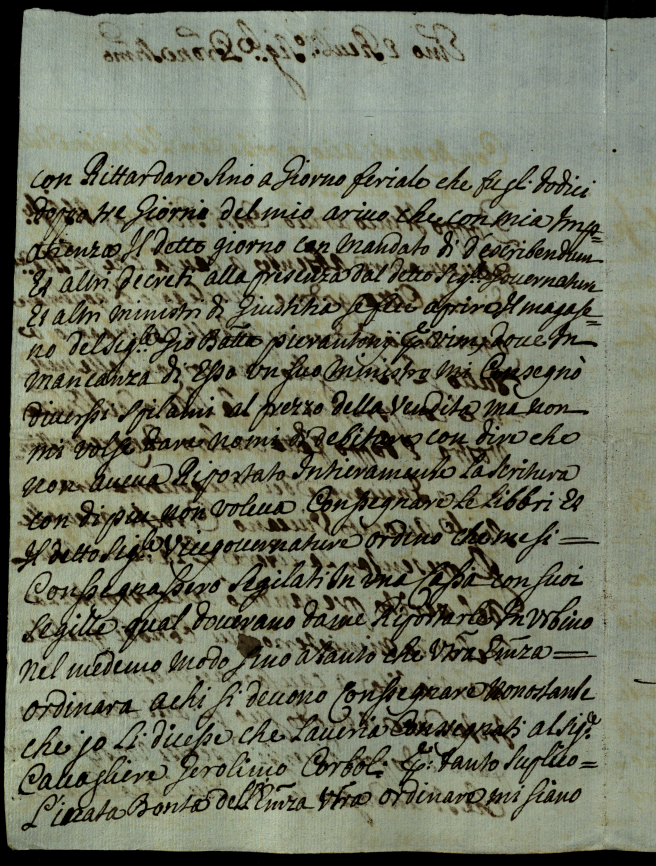 con Rittardare sino a Giorno feriale che fu gl: dodici
doppo tre Giorni del mio arivo che con mia Imp=
atienza Il detto giorno con mandato di describendum
Et altri decreti alla presenza dal detto Sig.re Governature
Et altri ministri di Giustitia se fece aprire Il magase=
no del Sig.re Gio Batta pierantonij dove In
mancanza di Esso un suo ministro mi Consegnò
diversi spilami al prezzo della Vendita ma non
mi volse dare nomi di debitori con dire che
non aveva Riportato Intieramente La Scritura
con di piu non voleva Conssegnare Le Libbri Et
Il detto Sig.re Vicegovernature ordino che me si =
Conssegnassero segilati In una Cassa con suoi
segilli qual dovevano da me Riportarle In Urbino
nel medemo modo sino a tanto che Vra Emza =
ordinara a chi si devono Conssegnare nonostante
che jo Li dicesse che L'averia Conssegnati al Sig.r
Cavagliere Gerolimo Corbol: E p: tanto suplico =
L'inata Bontà dell'Emza Vra ordinare mi siano